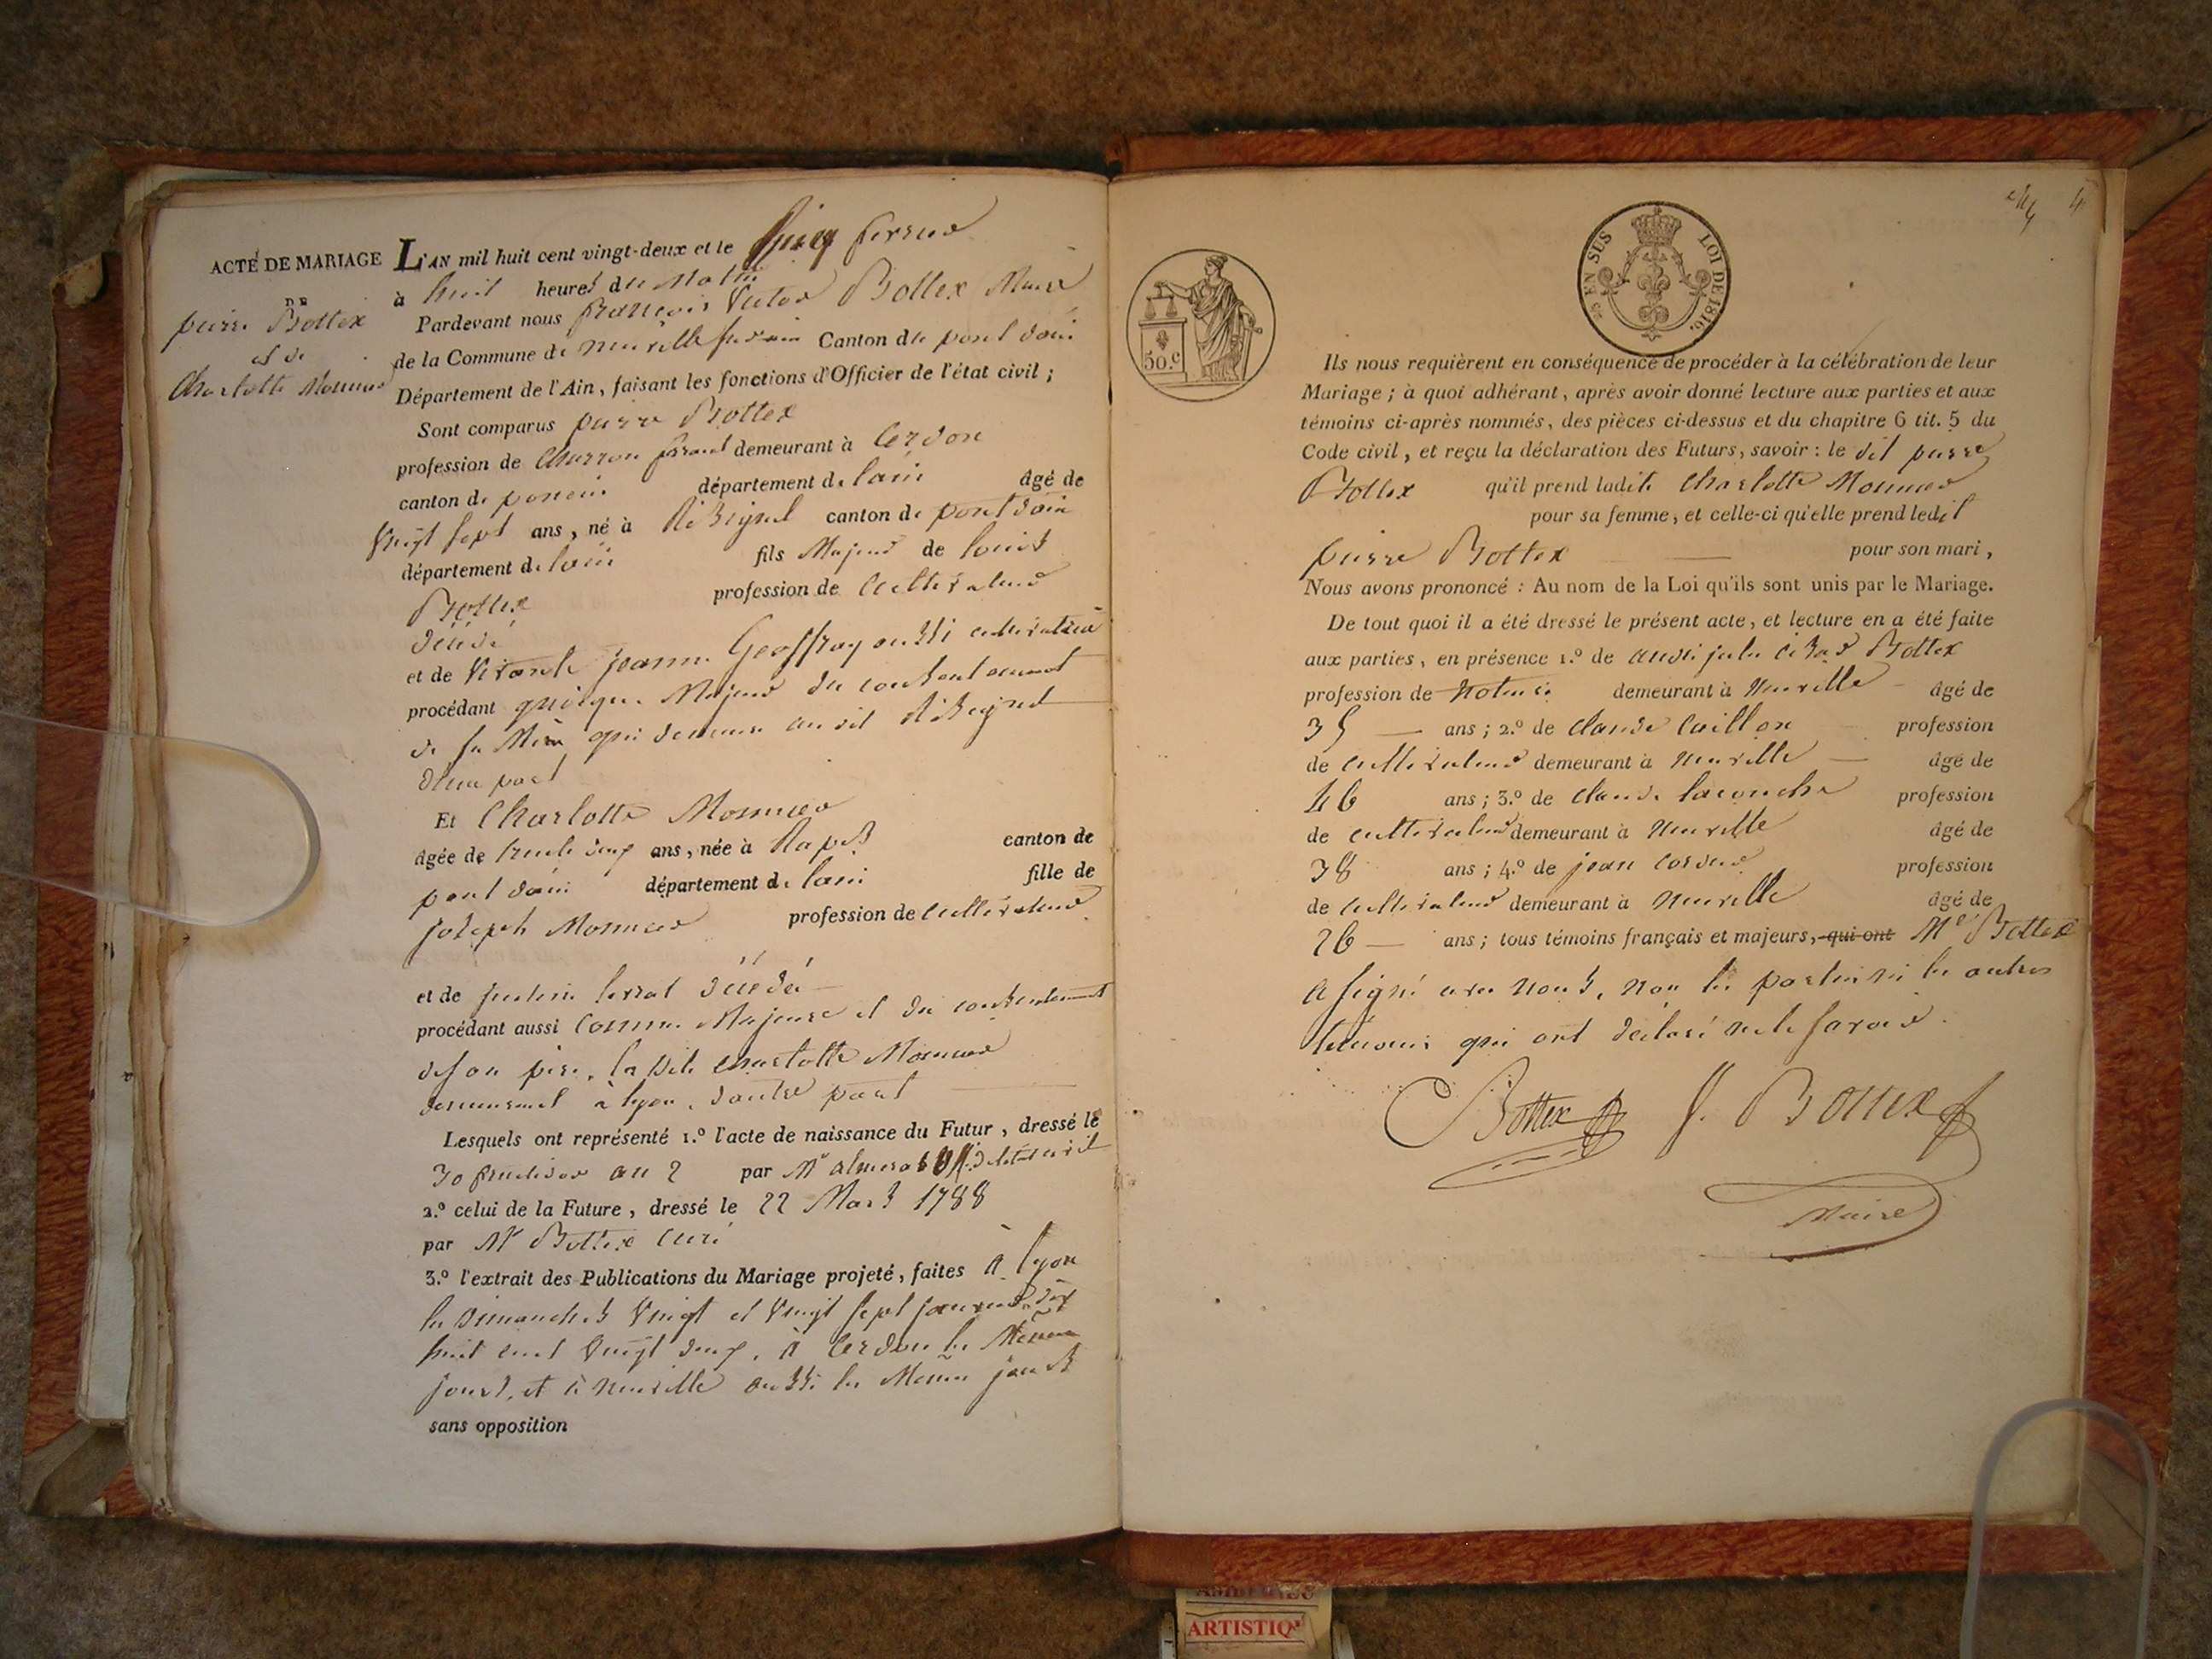 ACTE DE MARIAGE
DE
pierre Bottex
et de
Charlotte Monnier
L'AN mil huit cent vingt-deux et le cinq fevrier
à huit heures du Matin
Pardevant nous françois Victor Bottex Maire
de la Commune de neuville sur ain Canton de pont dain
Département de l'Ain, faisant les fonctions d'Officier de l'état civil ;
Sont comparus pierre Bottex
profession de Charron demeurant à Cerdon
canton de poncin département de lain âgé de
Vingt sept ans, né à canton de pont dain
département de lain fils Majeur de louis
Bottex profession de Cultivateur
décédé
et de Vivante jeanne Geoffray aussi cultivatrice
procédant quoique Majeur du consentement
de sa Mère qui demeure au dit
d'une part
Et Charlotte Monnier
âgée de trente deux ans, née à canton de
pont dain département de lain fille de
joseph Monnier profession de Cultivateur
et de décédée
procédant aussi Comme Majeure et du consentement
de son père, la dite Charlotte Monnier
demeurant à lyon, d'autre part
Lesquels ont représenté 1.º l'acte de naissance du Futur, dressé le
30 an 2 par Mr
2.º celui de la Future, dressé le 22 Mars 1788
par Mr Bottex Curé
3.º l'extrait des Publications du Mariage projeté, faites à lyon
les Dimanches Vingt et Vingt sept janvier dix
huit cent Vingt deux, à Cerdon les Mêmes
jours, et à neuville aussi les Mêmes jours
sans opposition
4
50.C
5 EN SUS LOI DE 1816.
Ils nous requièrent en conséquence de procéder à la célébration de leur
Mariage ; à quoi adhérant, après avoir donné lecture aux parties et aux
témoins ci-après nommés, des pièces ci-dessus et du chapitre 6 tit. 5 du
Code civil, et reçu la déclaration des Futurs, savoir : le dit pierre
Bottex qu'il prend ladite Charlotte Monnier
pour sa femme, et celle-ci qu'elle prend ledit
pierre Bottex pour son mari,
Nous avons prononcé : Au nom de la Loi qu'ils sont unis par le Mariage.
De tout quoi il a été dressé le présent acte, et lecture en a été faite
aux parties, en présence 1.º de Bottex
profession de Notaire demeurant à Neuville âgé de
35 ans ; 2.º de Claude Caillon profession
de Cultivateur demeurant à Neuville âgé de
46 ans ; 3.º de Claude Lacouche profession
de Cultivateur demeurant à Neuville âgé de
38 ans ; 4.º de jean Cordier profession
de Cultivateur demeurant à Neuville âgé de
26 ans ; tous témoins français et majeurs, qui ont Mr Bottex
a signé avec Nous, Non les parties ni les autres
témoins qui ont déclaré ne le savoir.
Bottex f. Bottex
Maire
ARTISTIQ